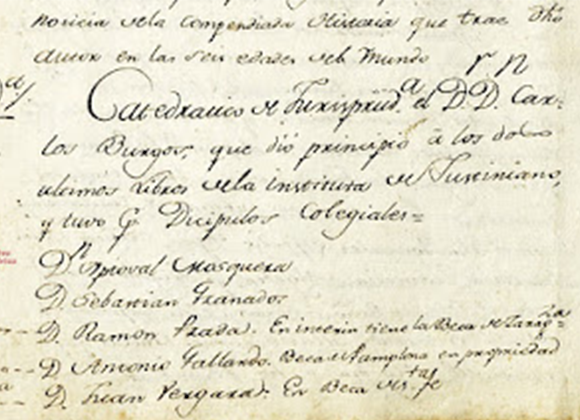 noticia de la Compendiada Historia que trae dho
Autor en las seis edades del Mundo
Catedratico de Jurisprud.a el D.D. Car-
los Burgos, que dió principio á los dos
ultimos Libros de la instituta de Justiniano,
y tuvo Dicipulos Colegiales=
D.n Mosquera
D. Sebastian Granados
D. Ramon Prada. En interin tiene la Beca de Zarag.za
D Antonio Gallardo. Beca de Pamplona en propriedad
D. Juan Vergara. En Beca de S.ta fe